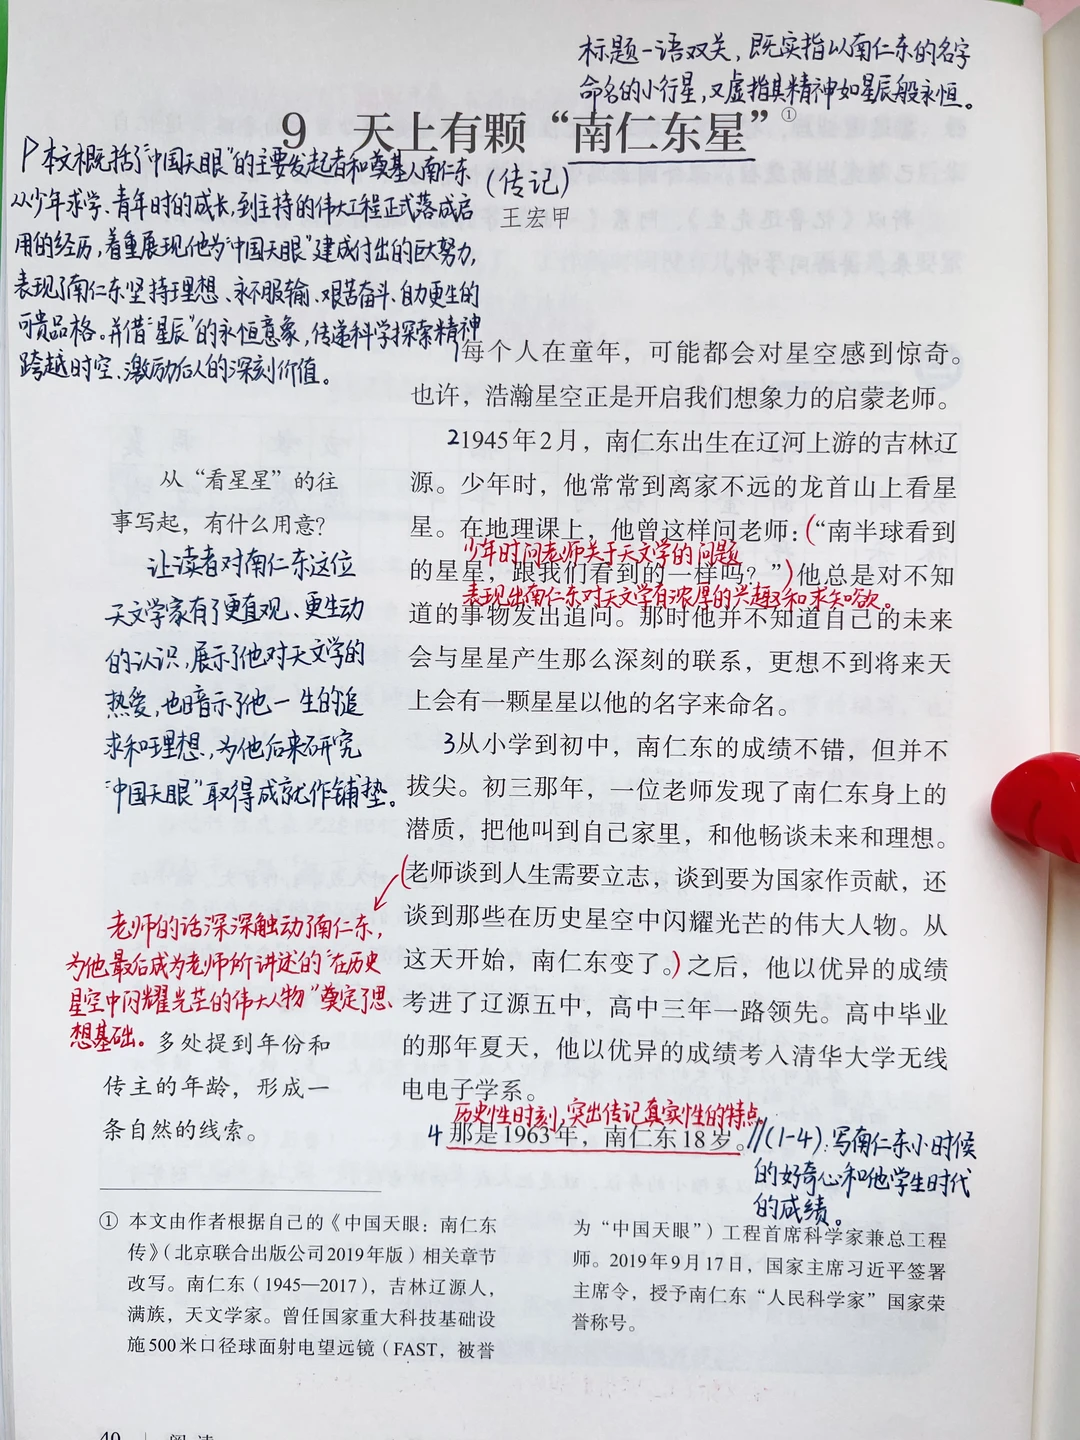 标题一语双关，既实指以南仁东的名字
命名的小行星，又虚指其精神如星辰般永恒。
9 天上有颗“南仁东星”①
（传记）
王宏甲
P本文概括了“中国天眼”的主要发起者和奠基人南仁东
从少年求学、青年时的成长，到主持的伟大工程正式落成启
用的经历，着重展现他为“中国天眼”建成付出的巨大努力，
表现了南仁东坚持理想、永不服输、艰苦奋斗、自力更生的
可贵品格。并借“星辰”的永恒意象，传递科学探索精神
跨越时空、激励后人的深刻价值。
1每个人在童年，可能都会对星空感到惊奇。
也许，浩瀚星空正是开启我们想象力的启蒙老师。
2 1945年2月，南仁东出生在辽河上游的吉林辽
源。少年时，他常常到离家不远的龙首山上看星
星。在地理课上，他曾这样问老师：（“南半球看到
少年时问老师关于天文学的问题
的星星，跟我们看到的一样吗？”）他总是对不知
表现出南仁东对天文学有浓厚的兴趣和求知欲。
道的事物发出追问。那时他并不知道自己的未来
会与星星产生那么深刻的联系，更想不到将来天
上会有一颗星星以他的名字来命名。
从“看星星”的往
事写起，有什么用意？
让读者对南仁东这位
天文学家有了更直观、更生动
的认识，展示了他对天文学的
热爱，也暗示了他一生的追
求和理想，为他后来研究
“中国天眼”取得成就作铺垫。
3从小学到初中，南仁东的成绩不错，但并不
拔尖。初三那年，一位老师发现了南仁东身上的
潜质，把他叫到自己家里，和他畅谈未来和理想。
（老师谈到人生需要立志，谈到要为国家作贡献，还
谈到那些在历史星空中闪耀光芒的伟大人物。从
这天开始，南仁东变了。）之后，他以优异的成绩
考进了辽源五中，高中三年一路领先。高中毕业
的那年夏天，他以优异的成绩考入清华大学无线
电电子学系。
老师的话深深触动了南仁东，
为他最后成为老师所讲述的“在历史
星空中闪耀光芒的伟大人物”奠定了思
想基础。
多处提到年份和
传主的年龄，形成一
条自然的线索。
历史性时刻，突出传记真实性的特点。
4那是1963年，南仁东18岁。//（1-4）：写南仁东小时候
的好奇心和他学生时代
的成绩。
① 本文由作者根据自己的《中国天眼：南仁东
传》（北京联合出版公司2019年版）相关章节
改写。南仁东（1945—2017），吉林辽源人，
满族，天文学家。曾任国家重大科技基础设
施500米口径球面射电望远镜（FAST，被誉
为“中国天眼”）工程首席科学家兼总工程
师。2019年9月17日，国家主席习近平签署
主席令，授予南仁东“人民科学家”国家荣
誉称号。
40 | 阅 读